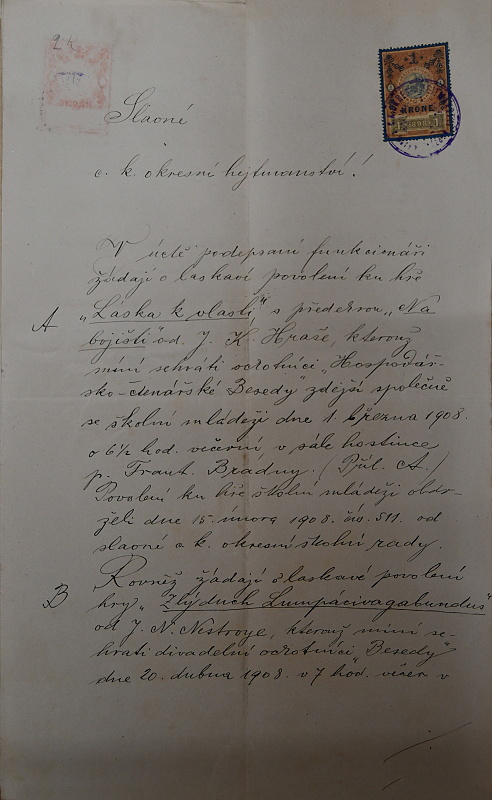 2 k
1
KRONE
Slavné
c. k. okresní hejtmanství!
V úctě podepsaní funkcionáři
žádají o laskavé povolení ku hře
A „Láska k vlasti“, s předehrou „Na
bojišti“ od J. K. Hraše, kterouž
míní sehráti ochotníci „Hospodář-
sko-čtenářské Besedy“ zdejší společně
se školní mládeží dne 1. března 1908.
o 6½ hod. večerní v sále hostince
p. Frant. Bradny. (Příl. A.)
Povolení ku hře školní mládeži obdr-
želi dne 15. února 1908. čís. 511. od
slavné c. k. okresní školní rady.
B Rovněž žádají o laskavé povolení
hry „Zlý duch Lumpácivagabundus“
od J. N. Nestroye, kterouž míní se-
hráti divadelní ochotníci „Besedy“
dne 20. dubna 1908 v 7 hod. večer v